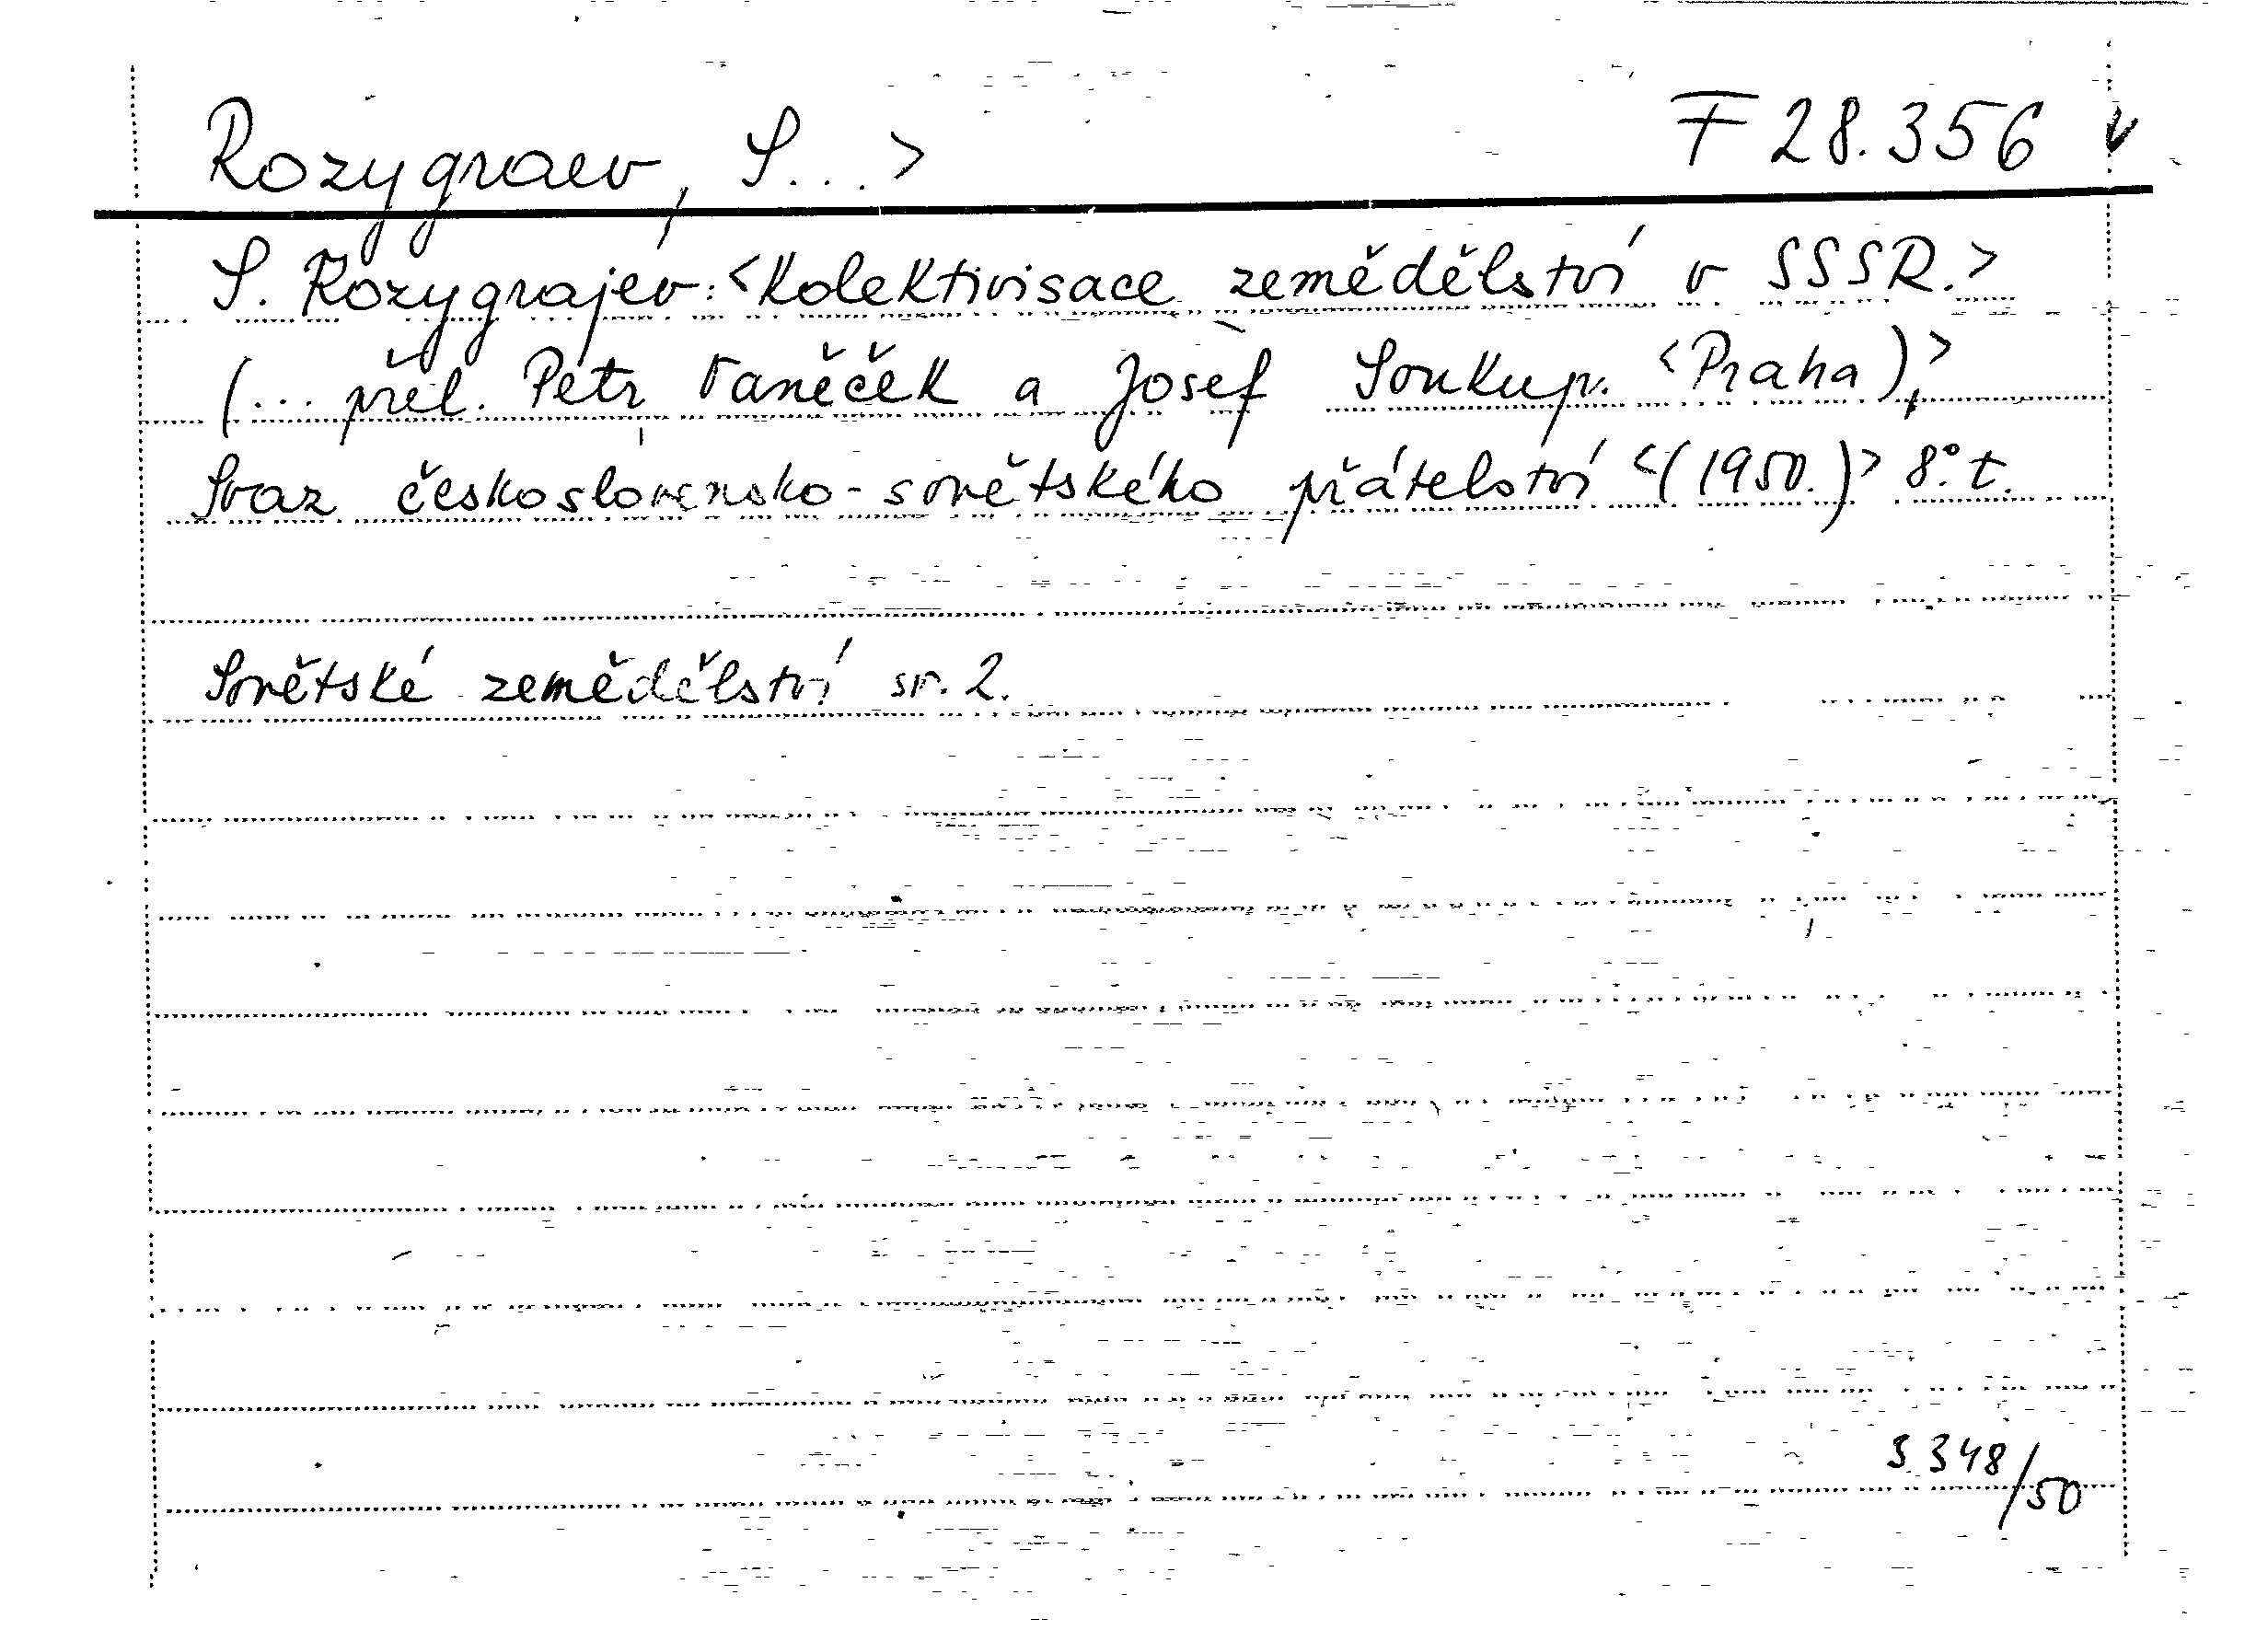 Rozygraev, S...> F 28.356 v
S. Rozygrajev: <Kolektivisace zemědělství v SSSR.>
(... přel. Petr Vaněček a Josef Soukup. <Praha),>
Svaz československo-sovětského přátelství <(1950.)> 8° t.
Sovětské zemědělství sv. 2.
S 348/50